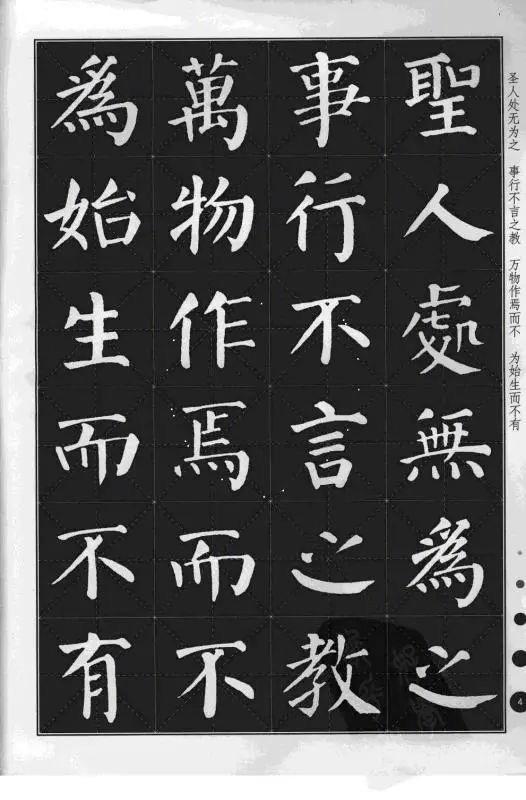 聖人處無爲之
事行不言之教
萬物作焉而不
爲始生而不有
圣人处无为之 事行不言之教 万物作焉而不 为始生而不有
4